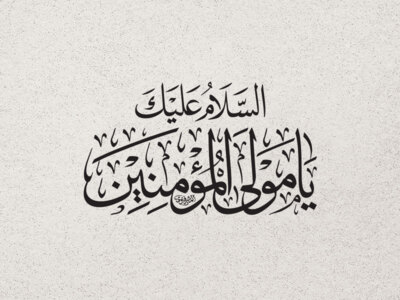 السَّلَامُ عَلَيْكَ
يَا مَوْلَى الْمُؤْمِنِينَ